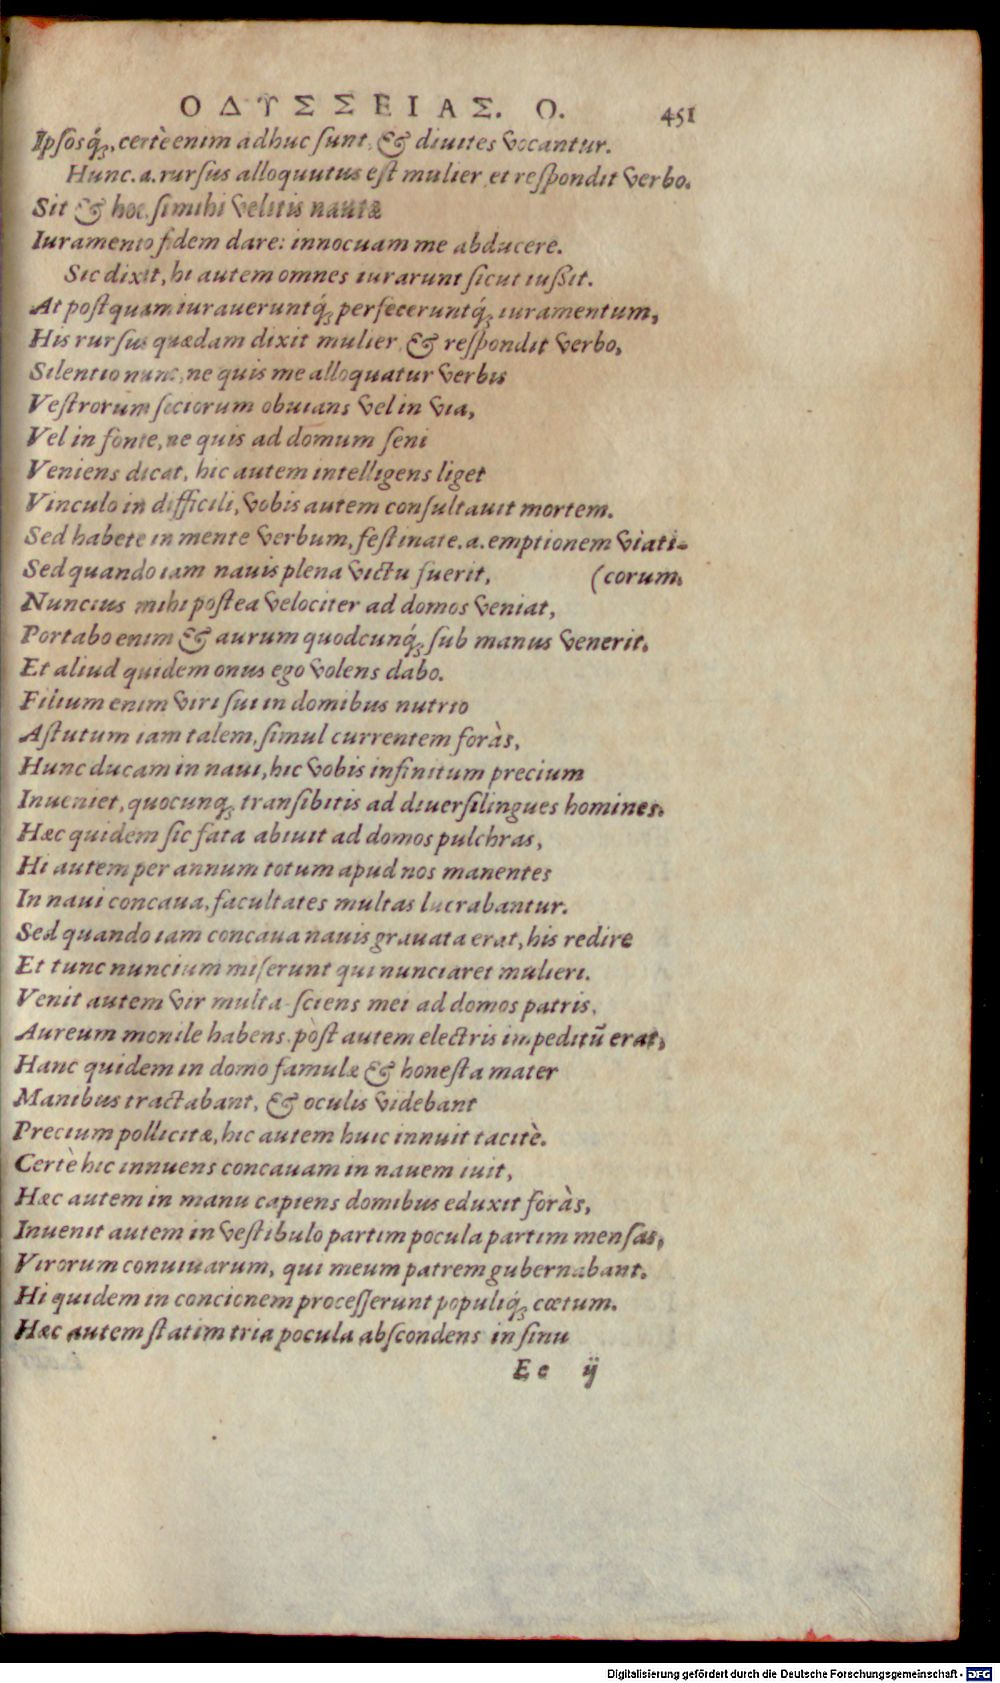 ΟΔΥΣΣΕΙΑΣ. Ο. 451
Ipsosq́;, certè enim adhuc sunt, & diuites vocantur.
Hunc.a.rursus alloquutus est mulier et respondit verbo.
Sit & hoc, si mihi velitis nautæ
Iuramento fidem dare: innocuam me abducere.
Sic dixit, hi autem omnes iurarunt sicut iussit.
At postquam iuraueruntq́; perfeceruntq́; iuramentum,
His rursus quædam dixit mulier, & respondit verbo,
Silentio nunc, ne quis me alloquatur verbis
Vestrorum sociorum obuians vel in via,
Vel in fonte, ne quis ad domum seni
Veniens dicat, hic autem intelligens liget
Vinculo in difficili, vobis autem consultauit mortem.
Sed habete in mente verbum, festinate.a.emptionem viati-
Sed quando iam nauis plena victu fuerit, (corum.
Nuncius mihi postea velociter ad domos veniat,
Portabo enim & aurum quodcunq́; sub manus venerit.
Et aliud quidem onus ego volens dabo.
Filium enim viri sui in domibus nutrio
Astutum iam talem, simul currentem foràs,
Hunc ducam in naui, hic vobis infinitum precium
Inueniet, quocunq; transibitis ad diuersilingues homines.
Hæc quidem sic fata abiuit ad domos pulchras,
Hi autem per annum totum apud nos manentes
In naui concaua, facultates multas lucrabantur.
Sed quando iam concaua nauis grauata erat, his redire
Et tunc nuncium miserunt qui nunciaret mulieri.
Venit autem vir multa sciens mei ad domos patris,
Aureum monile habens. pòst autem electris impeditū erat,
Hanc quidem in domo famulæ & honesta mater
Manibus tractabant, & oculis videbant
Precium pollicitæ, hic autem huic innuit tacitè.
Certè hic innuens concauam in nauem iuit,
Hæc autem in manu capiens domibus eduxit foràs,
Inuenit autem in vestibulo partim pocula partim mensas,
Virorum conuiuarum, qui meum patrem gubernabant.
Hi quidem in concionem processerunt populiq́; cœtum.
Hæc autem statim tria pocula abscondens in sinu
Ee ij
Digitalisierung gefördert durch die Deutsche Forschungsgemeinschaft - DFG